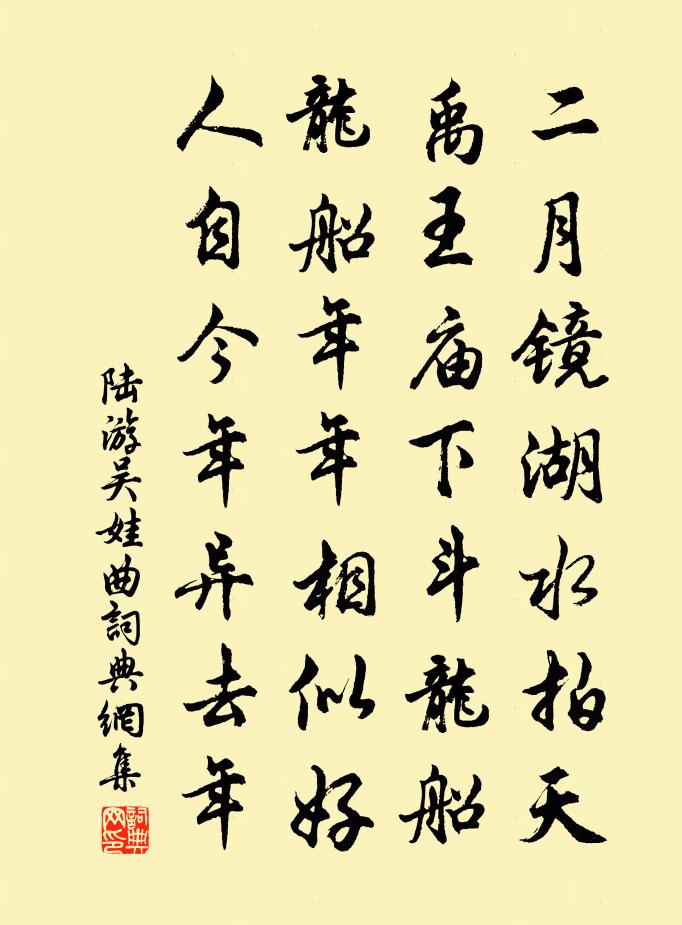 二月镜湖水拍天
禹王庙下斗龍船
龍船年年相似好
人自今年异去年
陆游吴娃曲詞典網集
詞典网印